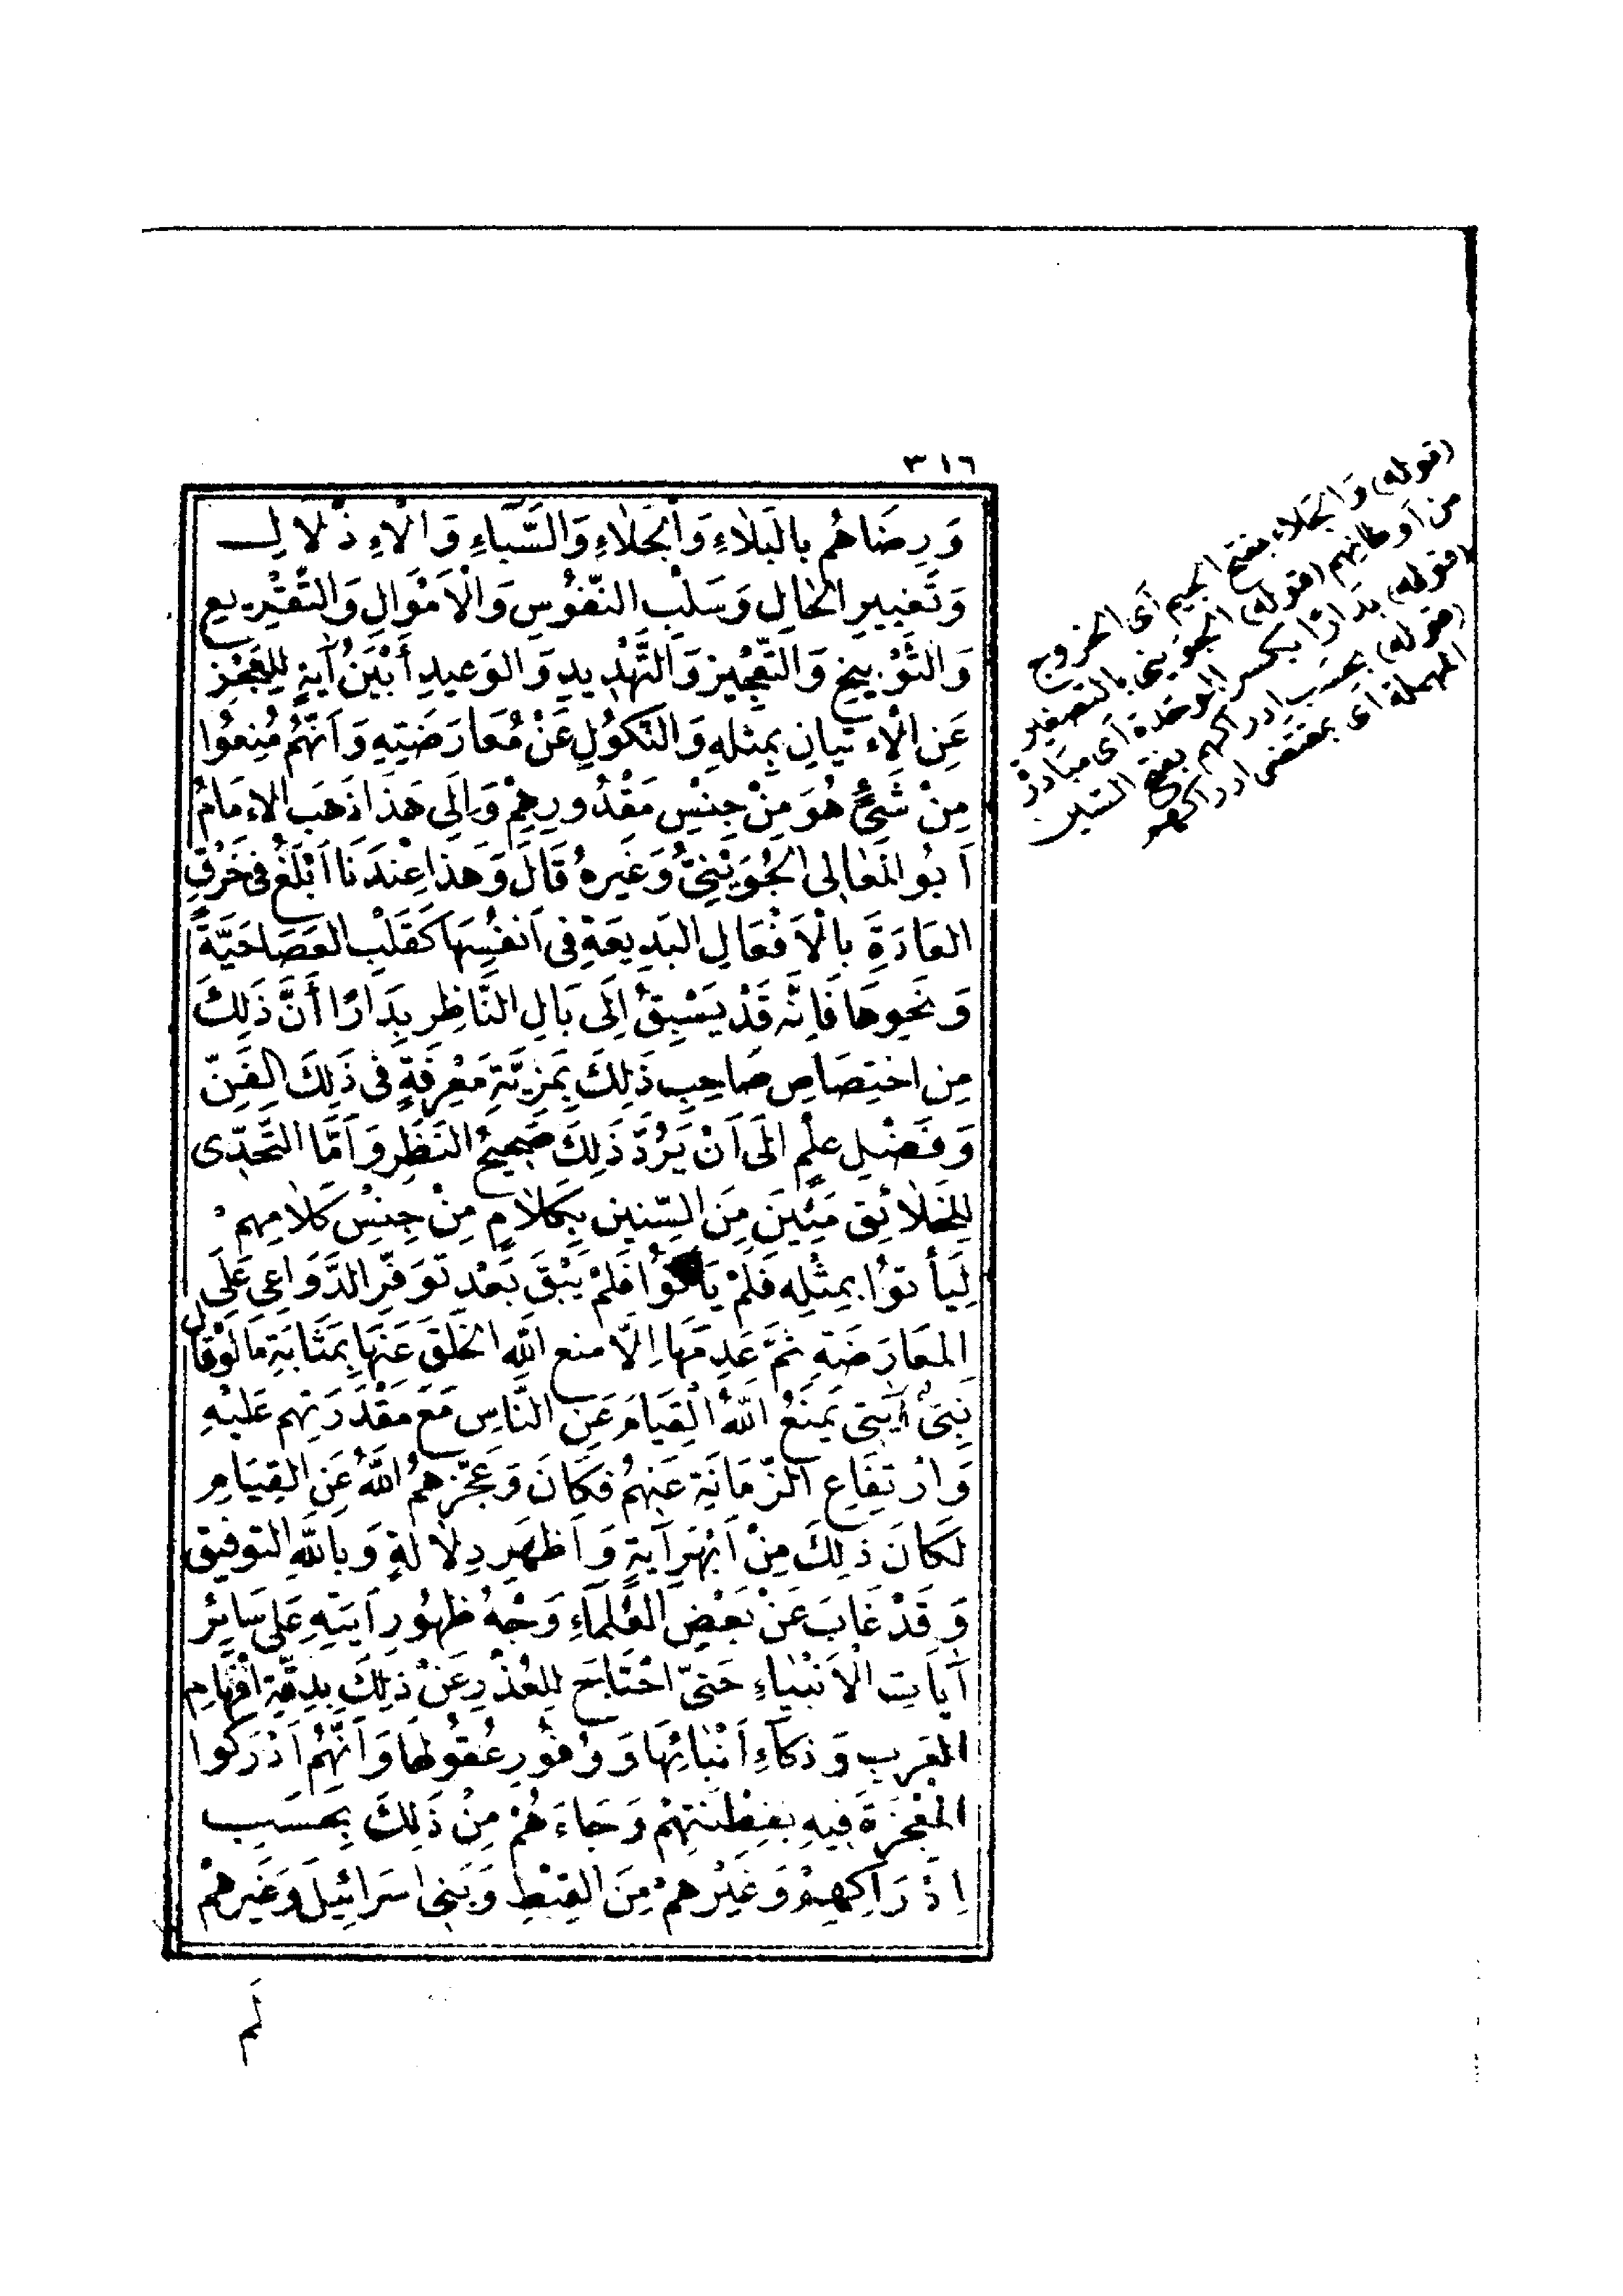 ٣١٦
وَرِضَاهُم بِالْبَلَاءِ وَالْجَلَاءِ وَالسِّبَاءِ وَالْاِذْلَالِ
وَتَغْيِيرِ الْحَالِ وَسَلْبِ النُّفُوسِ وَالْاَمْوَالِ وَالتَّقْرِيعِ
وَالتَّوْبِيخِ وَالتَّعْجِيزِ وَالتَّهْدِيدِ وَالوَعِيدِ أَبْيَنُ آيَةٍ لِلعَجْزِ
عَنِ الْاِتْيَانِ بِمِثْلِهِ وَالنُّكُولِ عَنْ مُعَارَضَتِهِ وَاَنَّهُمْ مُنِعُوا
مِنْ شَىْءٍ هُوَ مِنْ جِنْسِ مَقْدُورِهِمْ وَاِلَى هَذَا ذَهَبَ الاِمَامُ
اَبُو الْمَعَالِى الْجُوَيْنِىُّ وَغَيرهُ قَالَ وَهَذَا عِنْدَنَا اَبْلَغُ فى خَرْقِ
العَادَةِ بِالْاَفْعَالِ البَدِيعَةِ فى اَنفُسِهَا كَقَلْبِ العَصَا حَيَّةً
وَنَحوِهَا فَاِنَّه قَدْ يَسْبِقُ اِلَى بَالِ النَّاظِرِ بِدَارًا أَنَّ ذَلِكَ
مِن اخْتِصَاصِ صَاحِبِ ذَلِكَ بِمَزِيَّةِ مَعْرِفَةٍ فى ذَلِكَ الفَنِّ
وَفَضْلِ عِلْمٍ اِلَى اَنْ يَرُدَّ ذَلِكَ صَحِيحُ النَّظَرِ وَاَمَّا التَّحَدِّى
لِلْخَلَائِقِ مِئِينَ مِنَ السِّنِينِ بِكَلَامٍ مِنْ جِنْسِ كَلَامِهِمْ
لِيَأْتُوا بِمِثْلِهِ فَلَمْ يَأْتُوا فَلَمْ يَبْقَ بَعْدَ تَوَفُّرِ الدَّوَاعِى عَلَى
المُعَارَضَةِ ثُمَّ عَدِمَهَا اِلَّا مَنع اللَّهِ الخَلْقَ عَنْهَا بِمَثَابَةِ مَا لَوْ قَال
نَبِىٌّ آيَتِى يَمْنَعُ اللَّهُ الْقِيَامَ عَنِ النَّاسِ مَعَ مَقْدَرَتِهِم عَلَيْهِ
وَارْتِفَاعِ الزَّمَانَةِ عَنهُمْ فَكَانَ وَعَجَّزَهُمُ اللَّهُ عَنِ القِيَامِ
لَكَانَ ذَلِكَ مِنْ اَبْهَرِ آيَةٍ وَاَظْهَرِ دِلَالَةٍ وَبِاللَّهِ التوفيق
وَقَدْ غَابَ عَنْ بَعْضِ الْعُلَمَاءِ وَجْهُ ظُهُورِ آيَتِهِ عَلَى سَائِرِ
آيَاتِ الْاَنْبِيَاءِ حَتىّ احْتَاجَ لِلْعُذْرِ عَنْ ذَلِكَ بِدِقَّةِ اَفْهَامِ
العَرَبِ وَذَكَاءِ اَلْبَابِهَا وَوُفُورِ عُقُولِهَا وَاَنَّهُمْ اَدْرَكُوا
المُعْجِزَةَ فِيهِ بِفِطْنَتِهِمْ وَجَاءَهُمْ مِنْ ذَلِكَ بِحَسَبِ
اِدْرَاكِهِمْ وَغَيْرهمْ مِنَ القِبْطِ وَبَنِى اسْرَائِيلَ وَغَيرهِمْ
لَم
(قوله) وَالجَلاء بفتح الجيم أى الخروج
من أوطانهم (قوله) الجُوَينى بالتصغير
(قوله) بدَارًا بكسر الموحّدة أى مبادرة
(قوله) بحَسَب ادراكهم بفتح السّين
المهملة أى بمقتضى ادراكهم